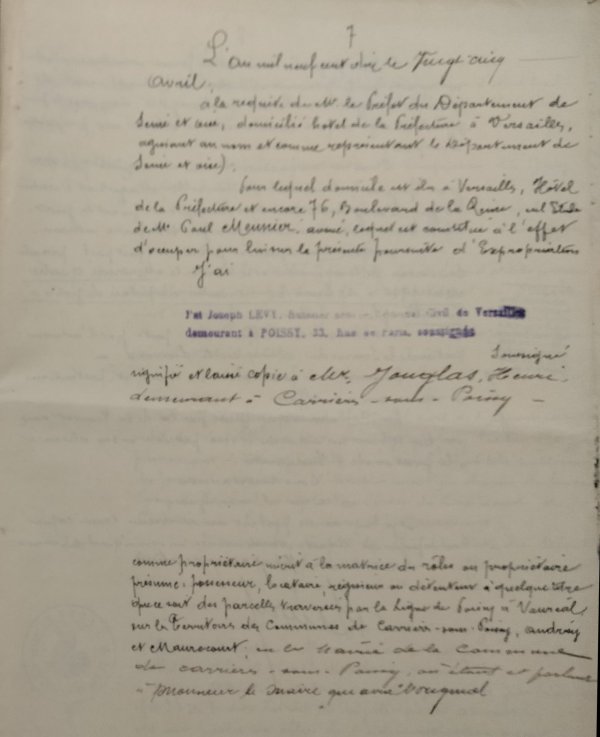 7
L'an mil neuf cent dix le Vingt cinq
avril,
à la requête de Mr. le Préfet du Département de
Seine et oise, domicilié hôtel de la Préfecture à Versailles,
agissant au nom et comme représentant le Département de
Seine et oise).
Pour lequel domicile est élu à Versailles, Hôtel
de la Préfecture et encore 76, Boulevard de la Reine, en l'Etude
de Me Paul Meunier, avoué, lequel est constitué à l'effet
d'occuper pour lui sur la présente poursuite d'Expropriation
J'ai
J'ai Joseph LEVY, Civil de Versailles
demeurant à POISSY, 33, Rue de Paris, soussigné
Soussigné
signifié et laissé copie à Mr. Jouglas, Henri
demeurant à Carrières-sous-Poissy
comme propriétaire inscrit à la matrice des rôles ou propriétaire
présumé, possesseur, locataire, régisseur ou détenteur à quelque titre
que ce soit des parcelles traversées par la ligne de Poissy à Vauréal,
sur le Territoire des Communes de Carrières-sous-Poissy, andrésy
et Maurecourt, en la Mairie de la Commune
de carrières-sous-Poissy, où étant et parlant
à Monsieur le maire qui a visé l'original